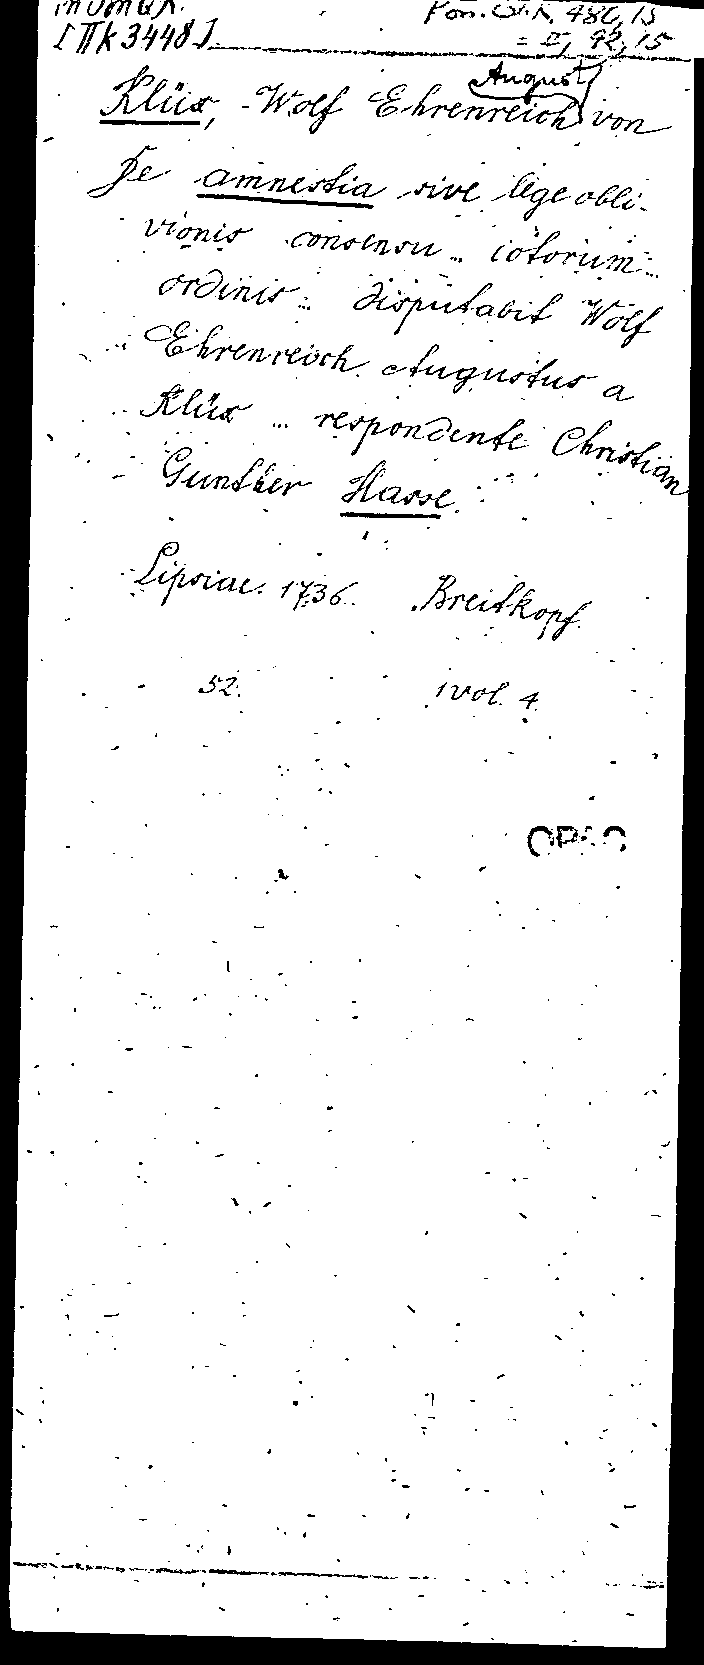 [IIk 3448] = II, 92,15
August
Klüx, Wolf Ehrenreich von
De amnestia sive lege obli-
vionis consensu ... ictorum ...
ordinis ... disputabit Wolf
Ehrenreich Augustus a
Klüx ... respondente Christian
Gunther Hasse.
Lipsiae. 1736. Breitkopf.
52. 1 vol. 4.
OPAC